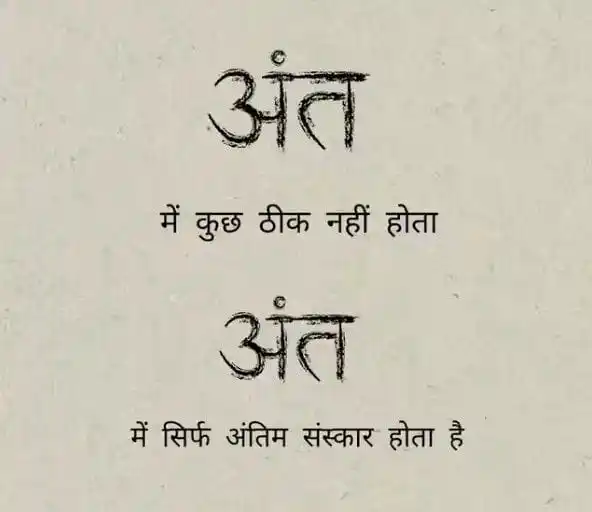 अंत
में कुछ ठीक नहीं होता
अंत
में सिर्फ अंतिम संस्कार होता है